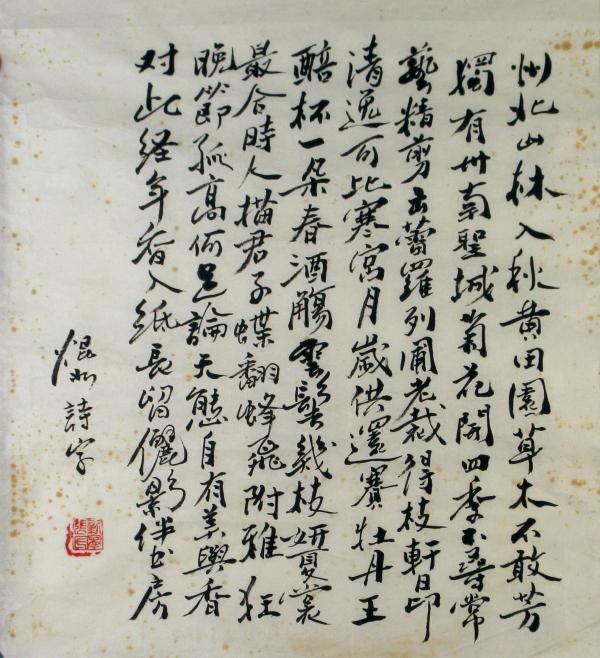 州北山林入秋黄田園草木不敢芳
獨有州南聖城菊花開四季不尋常
藝精剪玉蕾羅列圃老栽得枝軒昂
清逸可比寒宮月歲供還賽牡丹王
醅杯一朵春酒觴雲鬢幾枝妍夏裳
最合時人描君子蝶翻蜂飛附雅狂
晚節孤高何足論天態自有美與香
对此経年香入紙長留儷影伴书房
焜如詩字